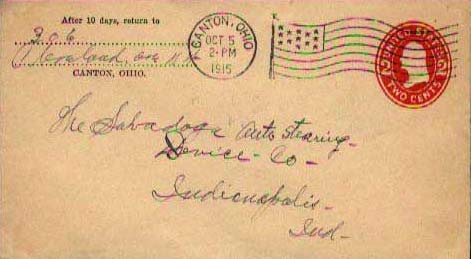 After 10 days, return to
CANTON, OHIO.
CANTON, OHIO
OCT 5
2-PM
1915
UNITED STATES
2 2
TWO CENTS
The Auto Stearing-
Device-Co-
Indianapolis-
Ind-